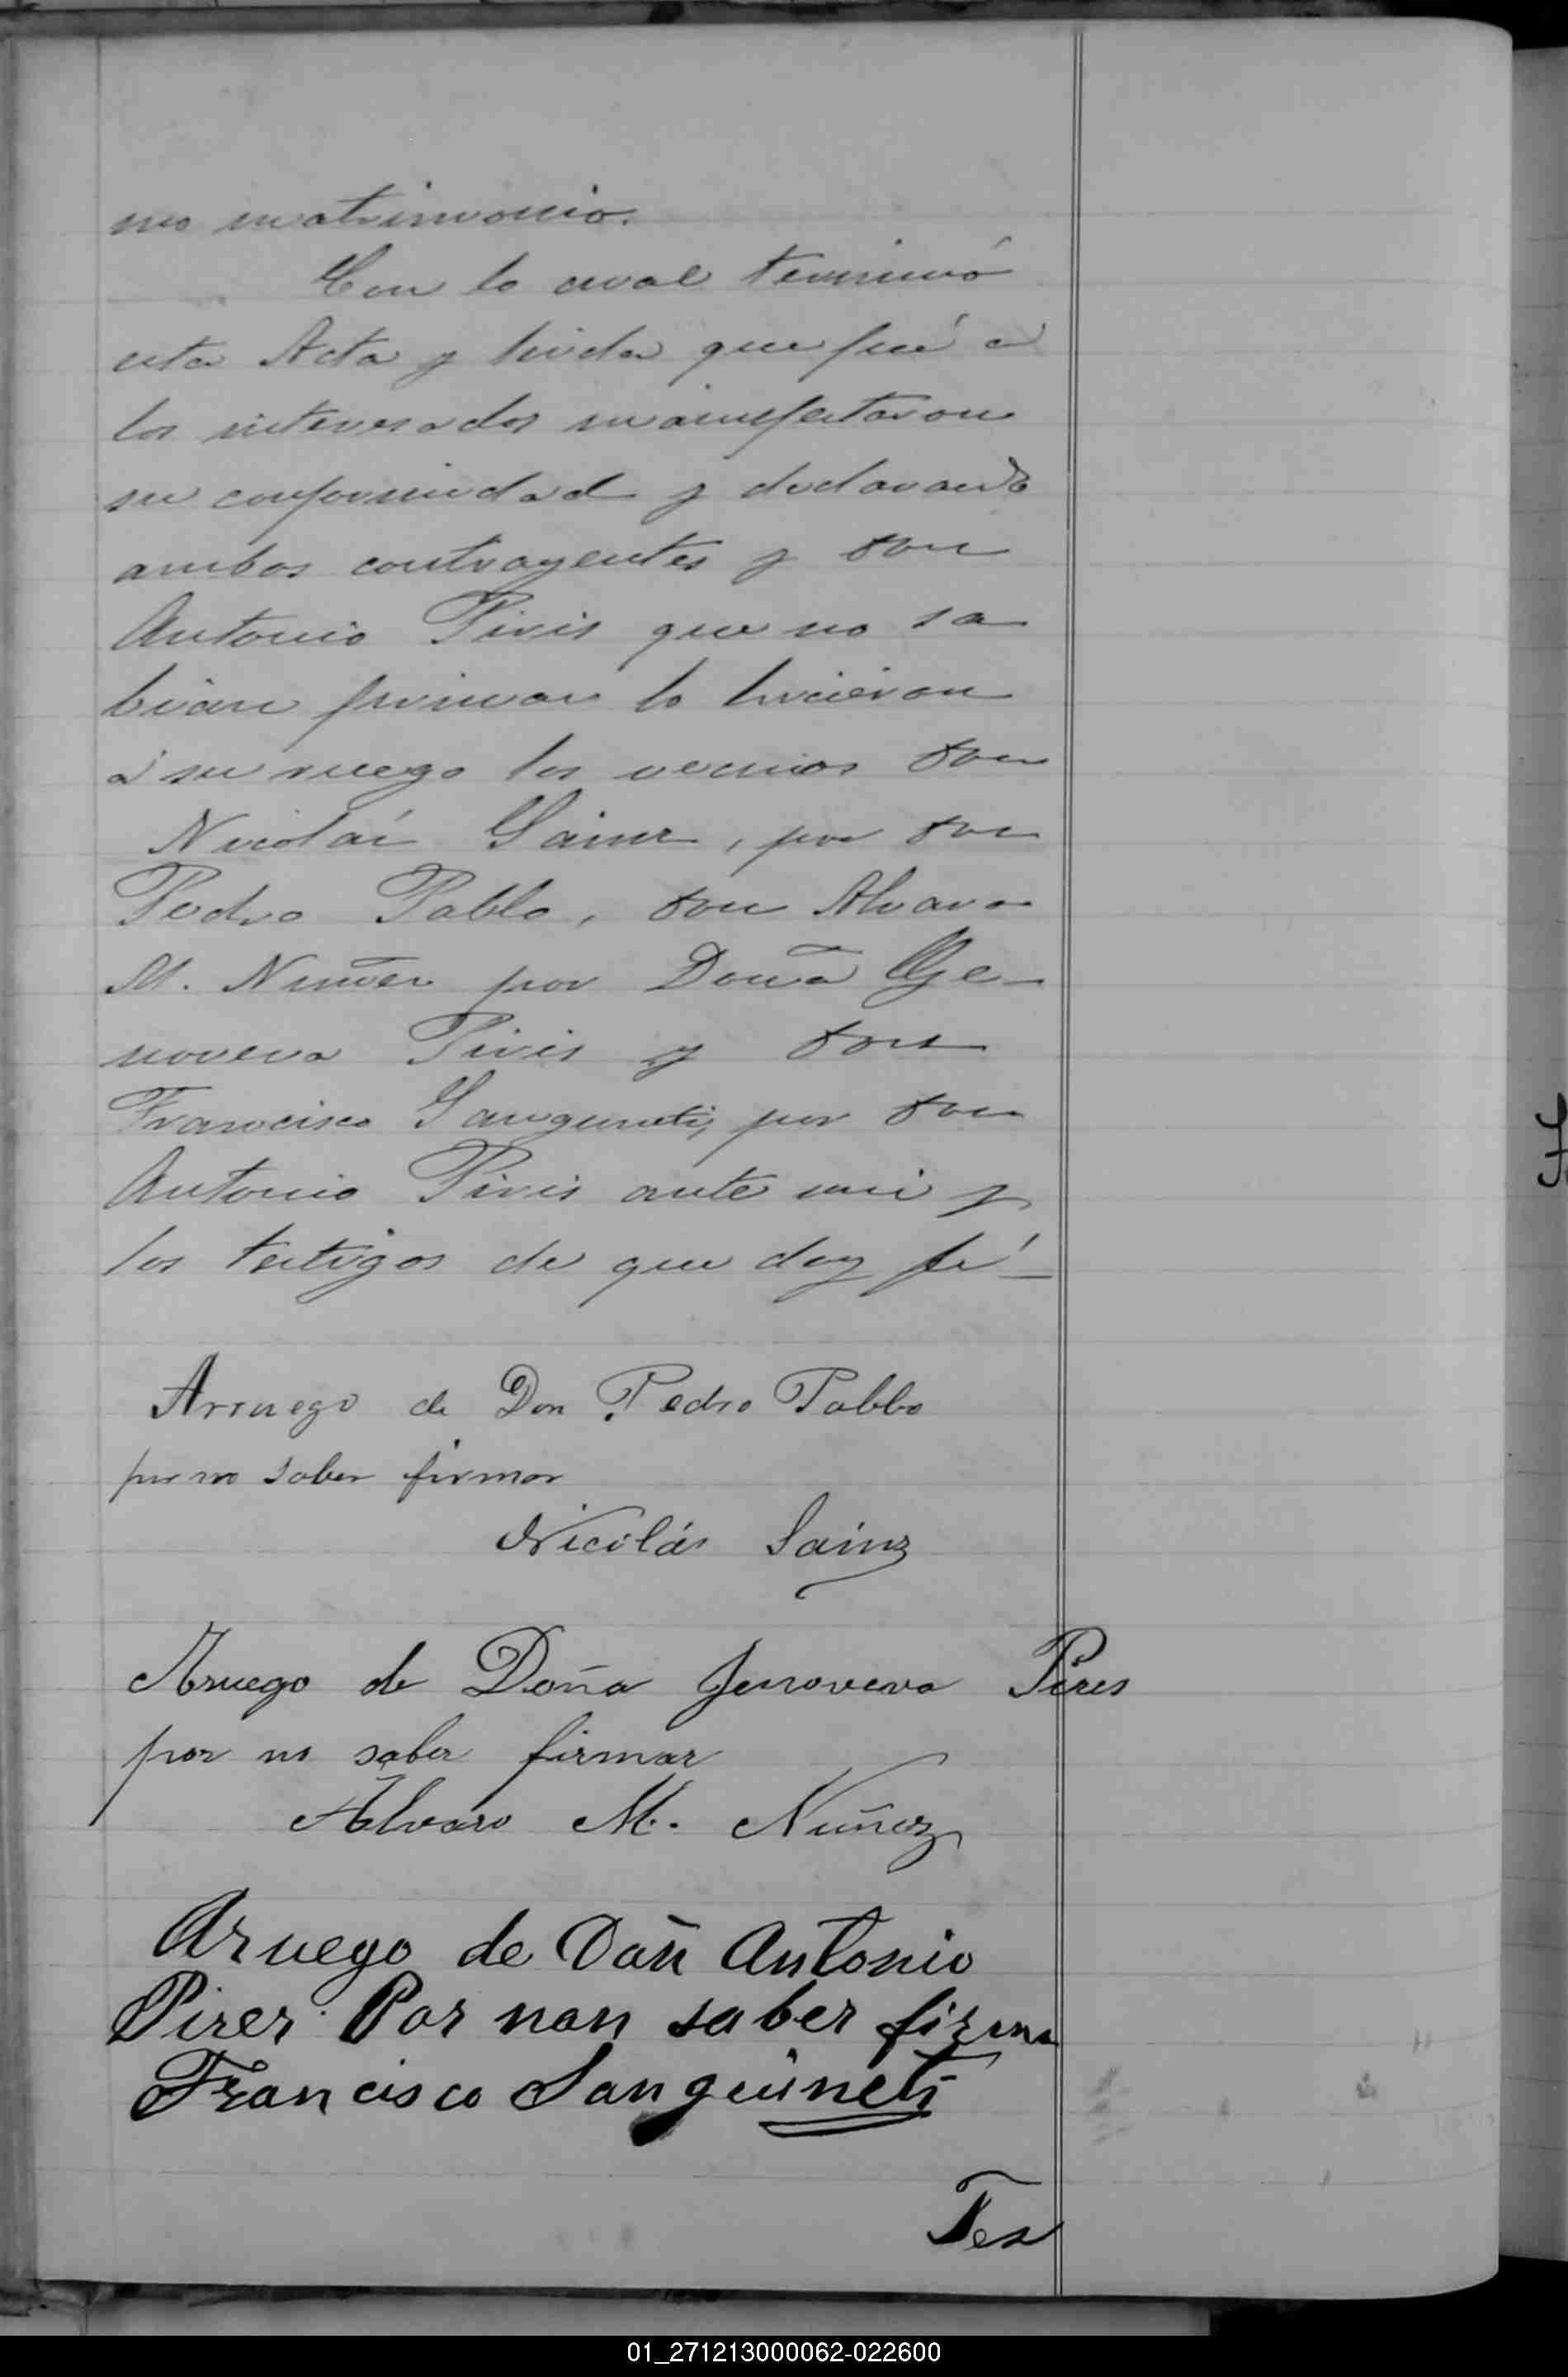 mo matrimonio.
Con lo cual terminó
esta Acta y leida que fué á
los interesados manifestaron
su conformidad y declarando
ambos contrayentes y Don
Antonio Piris que no sa
bian firmar lo hicieron
á su ruego los vecinos Don
Nicolás Sainz, por Don
Pedro Pablo, Don Alvaro
M. Nuñez por Doña Ge-
noveva Piris y Don
Francisco Sanguineti, por Don
Antonio Piris ante mi y
los testigos de que doy fé-
Arruego de Don Pedro Pabblo
por no saber firmar
Nicolás Sainz
Aruego de Doña Jenoveva Pires
por no saber firmar
Alvaro M. Nuñez
Aruego de Don Antonio
Pirez Por non saber firma
Francisco Sanguineti
Tes
01_271213000062-022600